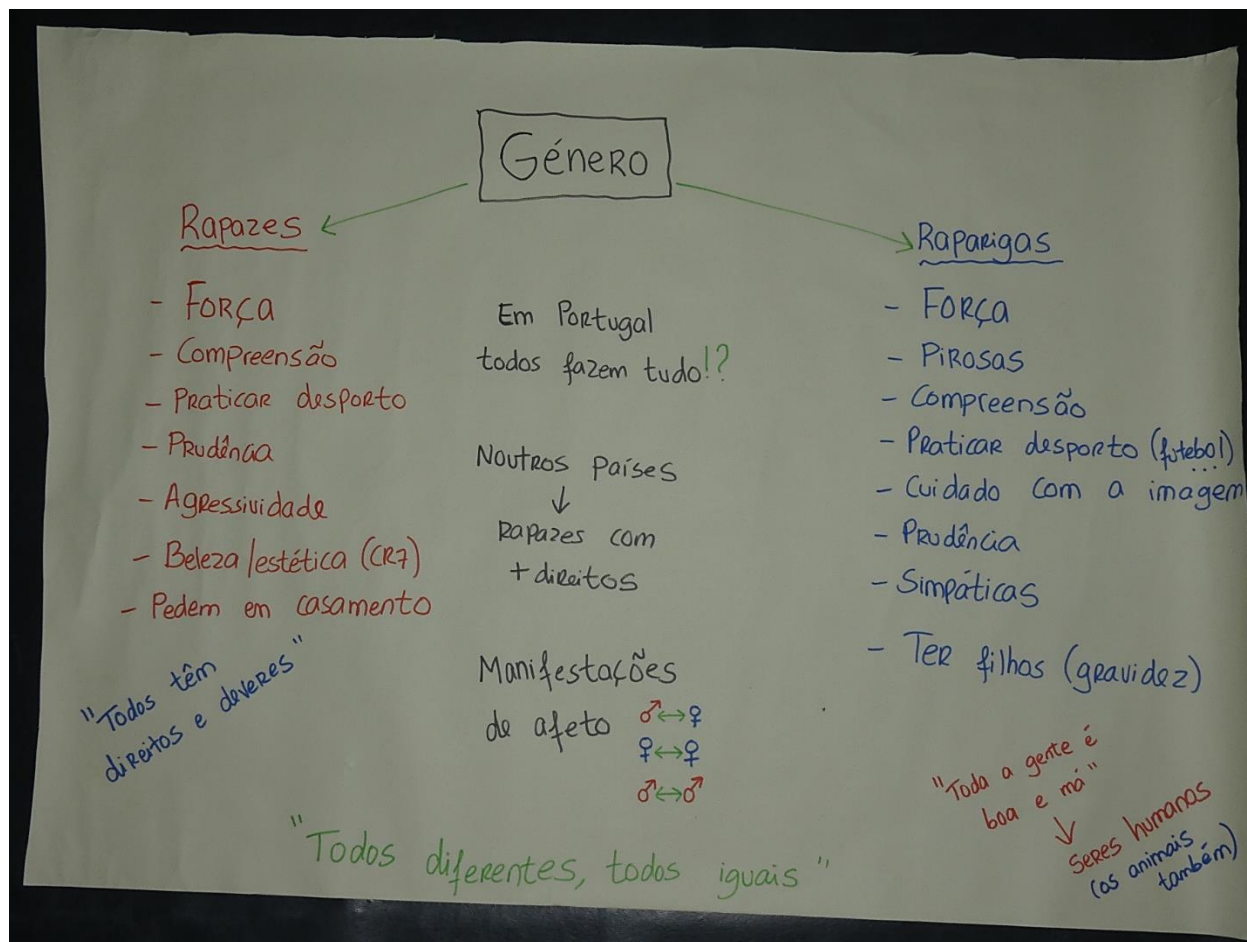 Género
Rapazes
- Força
- Compreensão
- Praticar desporto
- Prudência
- Agressividade
- Beleza/estética (CR7)
- Pedem em casamento
"Todos têm
direitos e deveres"
Em Portugal
todos fazem tudo!?
Noutros países
↓
Rapazes com
+ direitos
Manifestações
de afeto ♂↔♀
♀↔♀
♂↔♂
Raparigas
- Força
- Pirosas
- Compreensão
- Praticar desporto (futebol)
...
- Cuidado com a imagem
- Prudência
- Simpáticas
- Ter filhos (gravidez)
"Toda a gente é
boa e má"
↓
Seres humanos
(os animais
também)
"Todos diferentes, todos iguais"